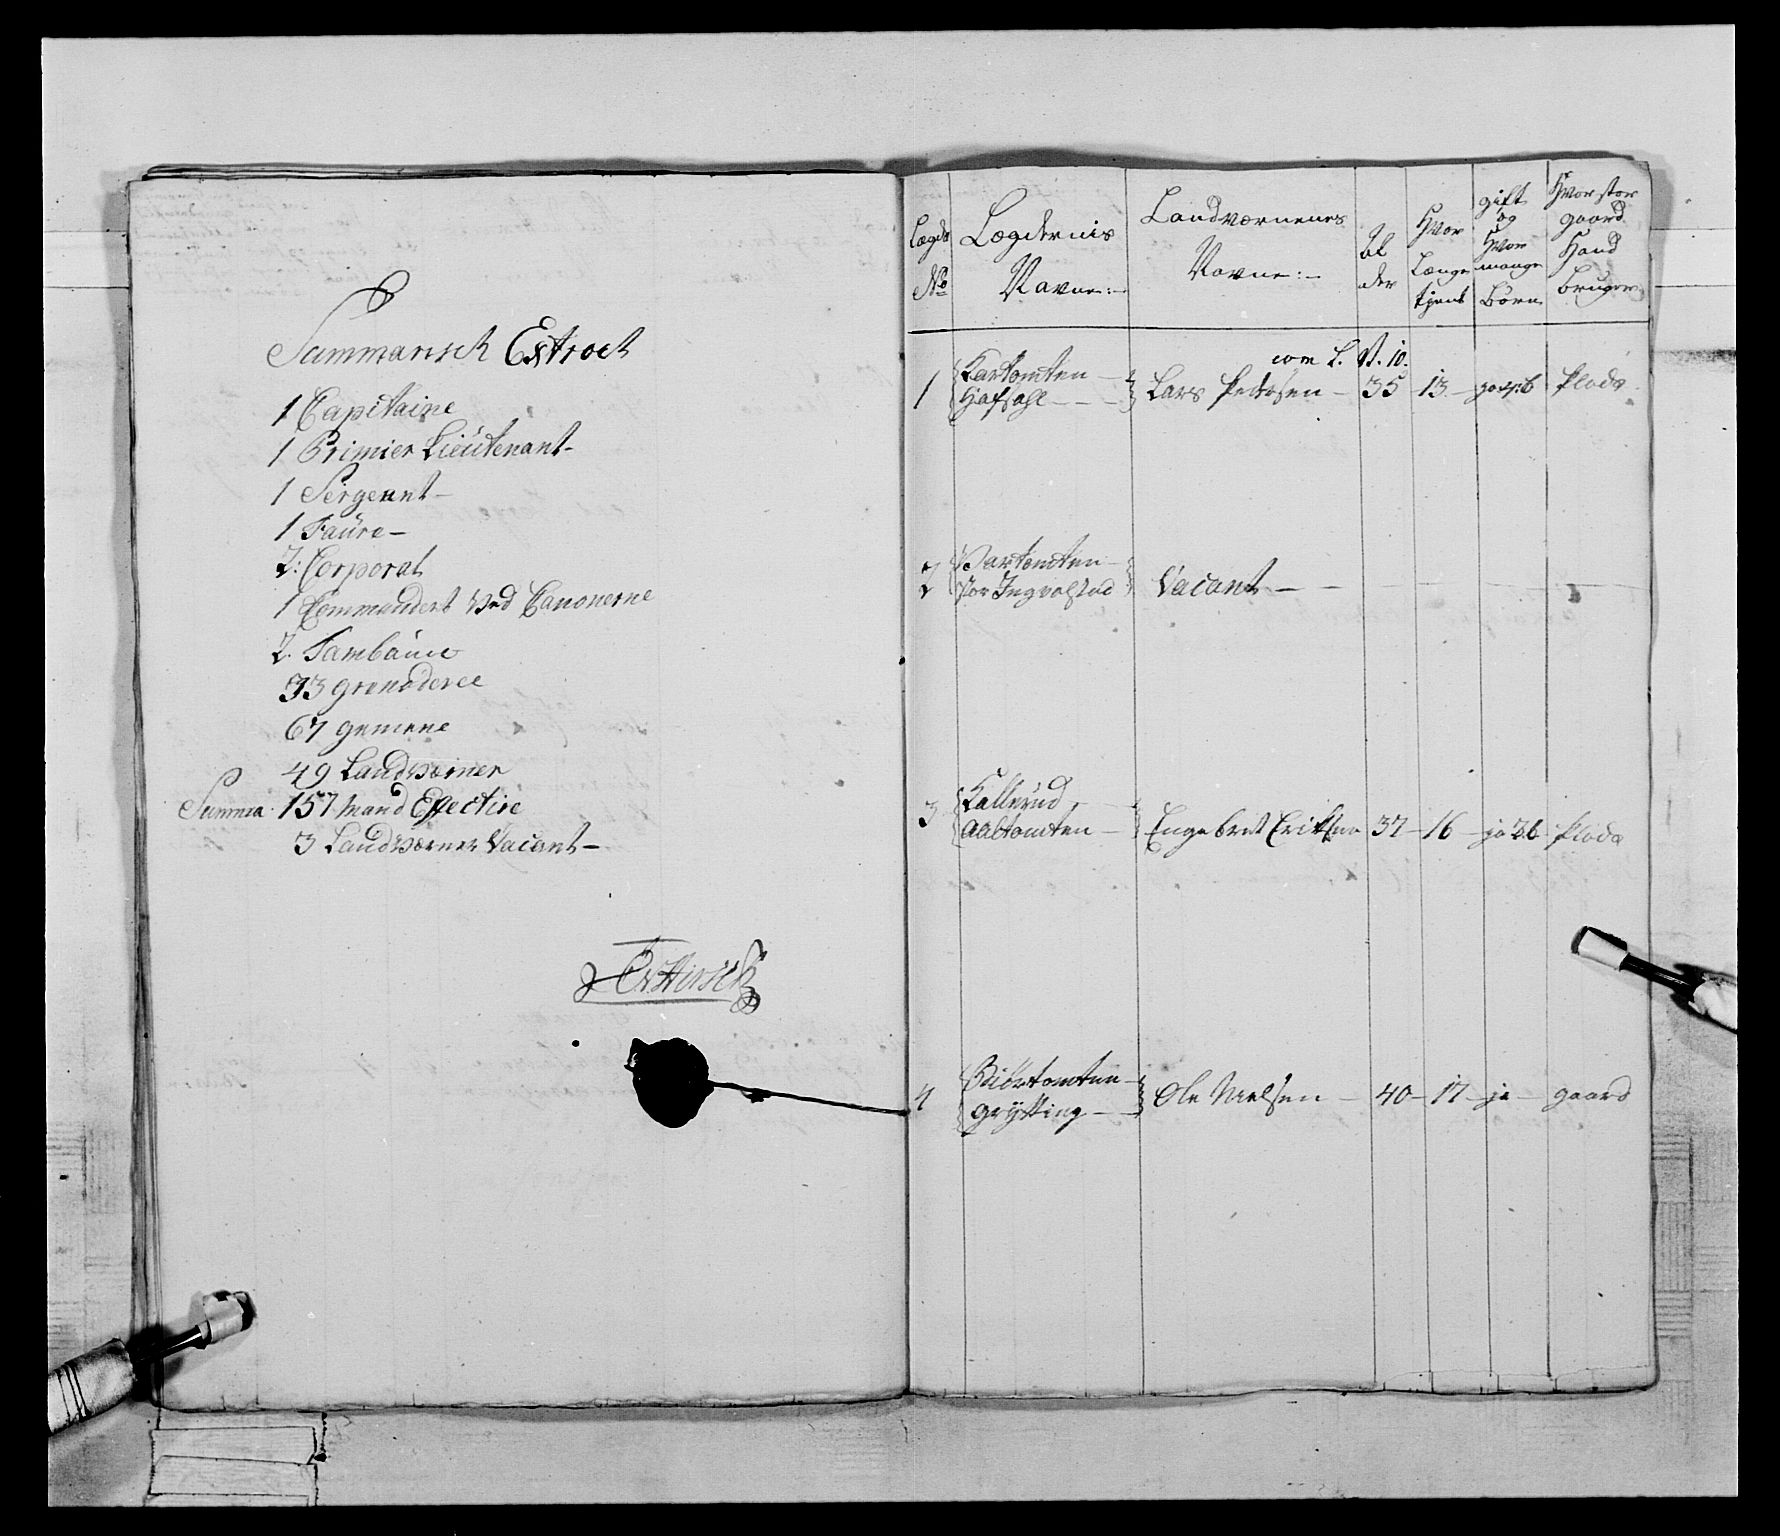 Summarisch Extract
1 Capitaine
1 Primier Lieutenant-
1 Sergeant-
1 Faure-
2: Corporal
1 Commandert ved Canonerne
2. Tambaure
33 grenaderee
67 gemene
49 Landværner
Summa. 157 Mand Effective
3 Landværner Vacant-
Lægds No
Lægdernis Navne:-
Landværnenes Navne:-
Alder
Hvor Længe tjent
gift og Hvor mange Børn
Hvor stor gaard Hand bruger
com L. N. 10.
1 Kartomten Hafsahl --- Lars Pedersen - 35 - 13 - Plads
2 Vartomten Stor Ingvalstad Vacant --
3 Kallerud, Aaltomten - Engebret Eriksen 37 - 16 - ja 2 b Plads
4 Biörtomten Grÿtting - Ole Nielsen - 40 - 17 - ja - gaard